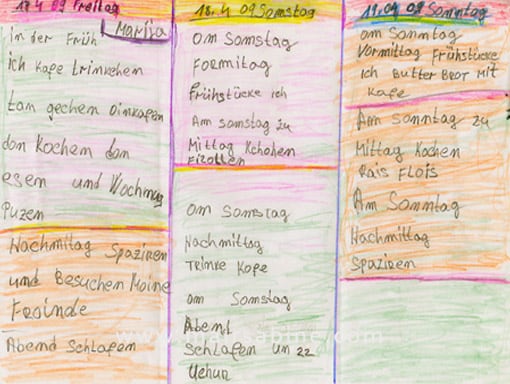 17.4 09 Freitag
Marija
in der Früh
ich Kafe trinkehen
dan Kochem dan
esen und Wochnung
Puzen
Nachmitag Spaziren
und Besuchen Meine
Froinde
Abend Schlafen
18.4 09 Samstag
Om Samstag
Formitag
Frühstücke ich
Am samstag zu
Mittag Kchohen
om Samstag
Nachmittag
Trinke Kafe
om Samstag
Abend
Schlafen un 22
Uehur
19.04 09 Sonntag
am Sonntag
Vormittag Frühstücke
ich Butter Brot Mit
Kafe
Am Sonntag zu
Mittag Kochen
Rais Flois
Am Sonntag
Nachmittag
Spaziren